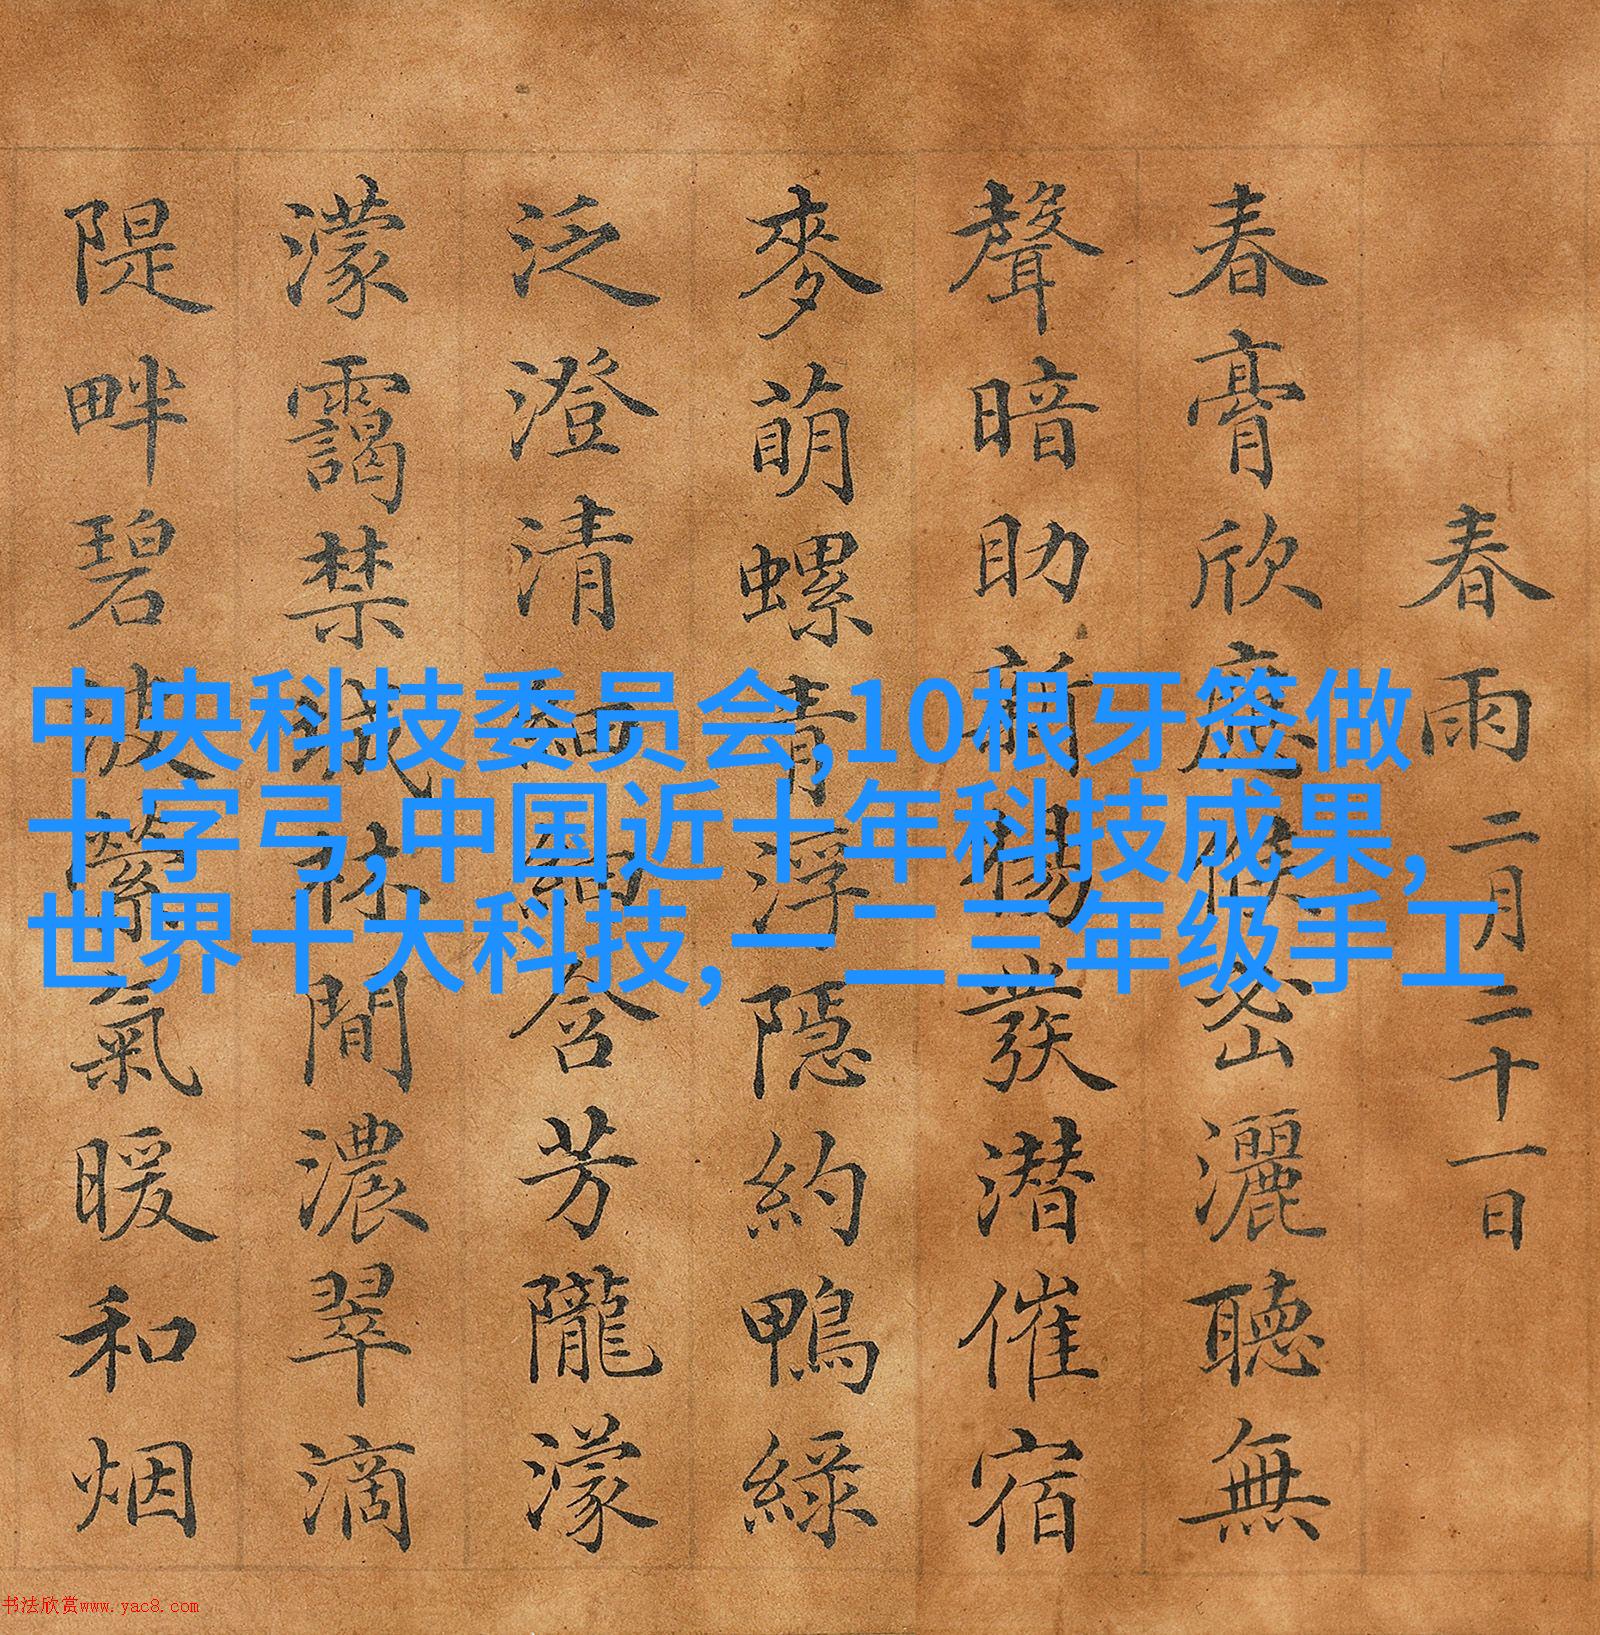 春雨 二月二十一日
春膏欣應候密灑聽無
聲暗助新楊發潜催宿
麥萌螺青浮隱約鴨綠
泛澄清細細含芳隴濛
濛靄禁城林間濃翠滴
隄畔碧波縈氣暖和烟
中央科技委员会,10根牙签做
十字弓,中国近十年科技成果,
世界十大科技,一二三年级手工
书法欣赏www.yac8.com